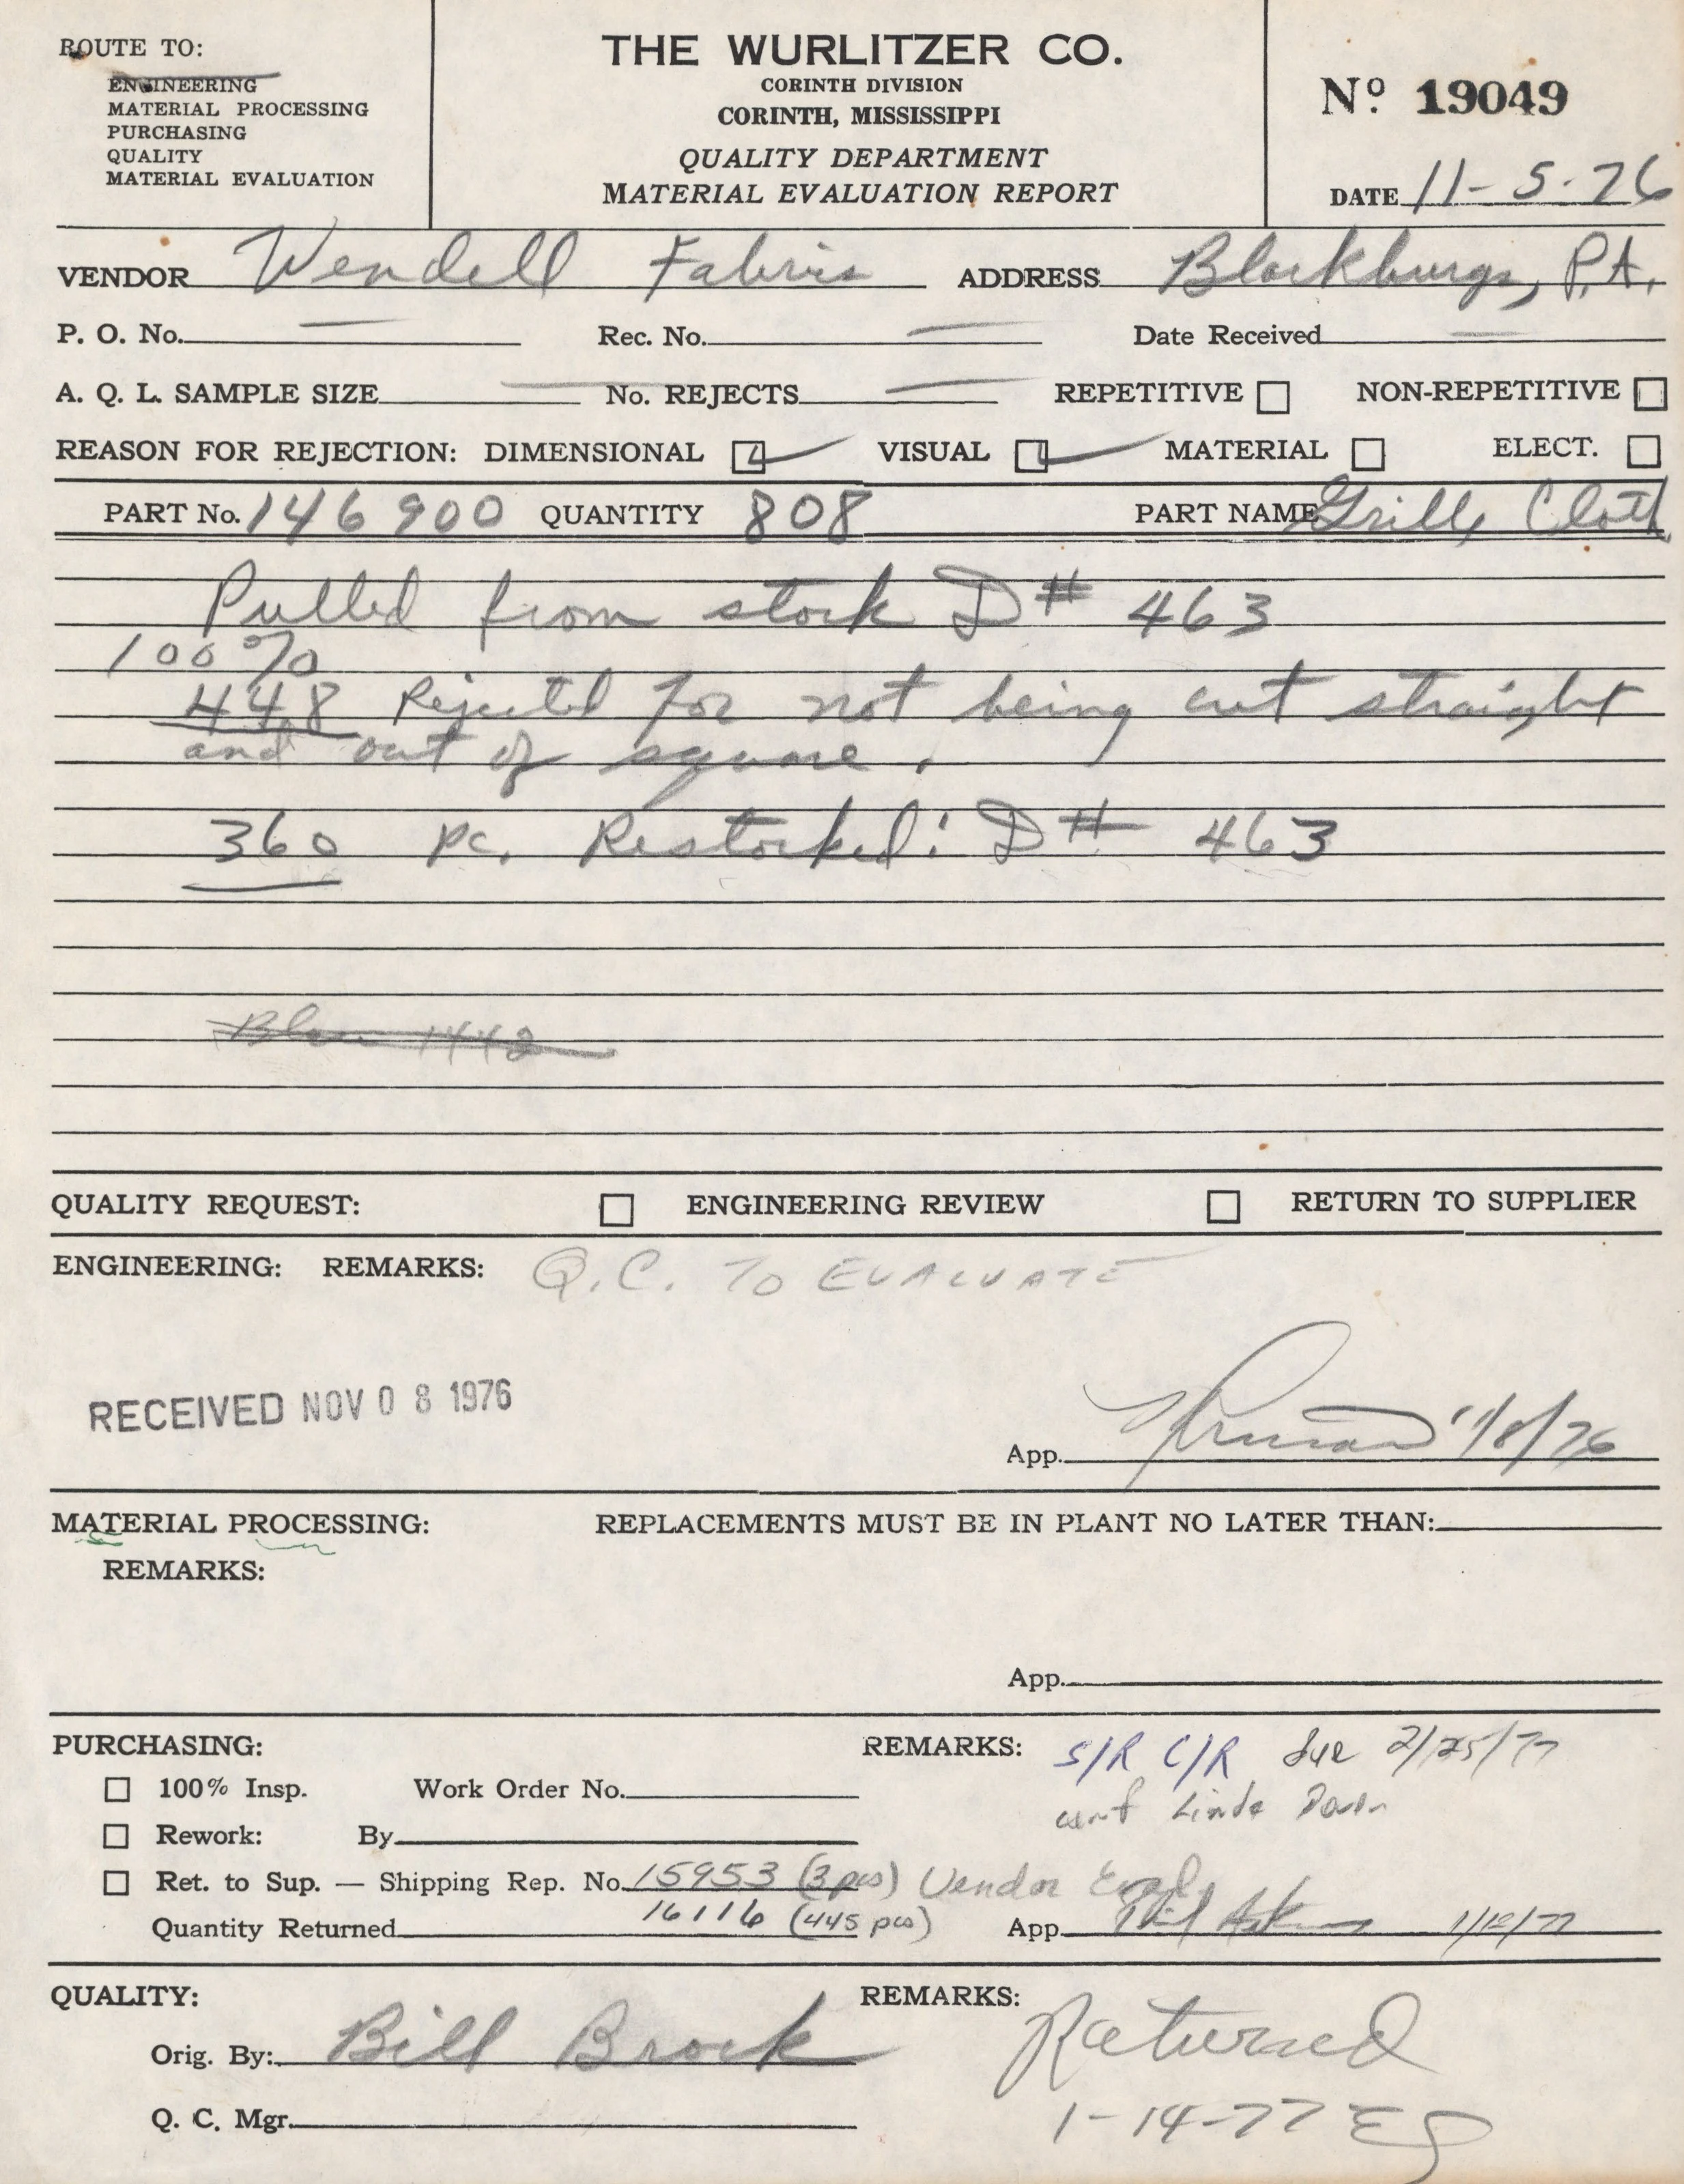 ROUTE TO:
ENGINEERING
MATERIAL PROCESSING
PURCHASING
QUALITY
MATERIAL EVALUATION
THE WURLITZER CO.
CORINTH DIVISION
CORINTH, MISSISSIPPI
QUALITY DEPARTMENT
MATERIAL EVALUATION REPORT
Nº 19049
DATE 11-5-76
VENDOR Wendell Fabrics ADDRESS Blackburgs, P.A.
P. O. No. — Rec. No. — Date Received —
A. Q. L. SAMPLE SIZE — No. REJECTS — REPETITIVE NON-REPETITIVE
REASON FOR REJECTION: DIMENSIONAL VISUAL MATERIAL ELECT.
PART No. 146900 QUANTITY 808 PART NAME Grille Cloth
Pulled from stock D# 463
100%
448 Rejected for not being cut straight
and out of square.
360 pc. Restocked: D# 463
QUALITY REQUEST: ENGINEERING REVIEW RETURN TO SUPPLIER
ENGINEERING: REMARKS: Q.C. TO EVALUATE
RECEIVED NOV 08 1976
App. 11/8/76
MATERIAL PROCESSING: REPLACEMENTS MUST BE IN PLANT NO LATER THAN:
REMARKS:
App.
PURCHASING: REMARKS: S/R C/R due 2/25/77
100% Insp. Work Order No. Linda
Rework: By
Ret. to Sup. — Shipping Rep. No. 15953 (3 pcs) Vendor
Quantity Returned 16116 (445 pcs) App. 1/12/77
QUALITY: REMARKS: Returned
Orig. By: Bill Brock
Q. C. Mgr. 1-14-77